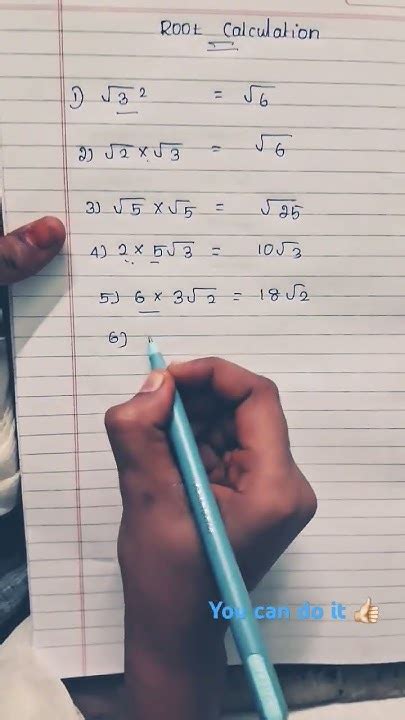 Root Calculation
1) √3 ² = √6
2) √2 × √3 = √6
3) √5 × √5 = √25
4) 2 × 5√3 = 10√3
5) 6 × 3√2 = 18√2
6)
You can do it 👍🏻